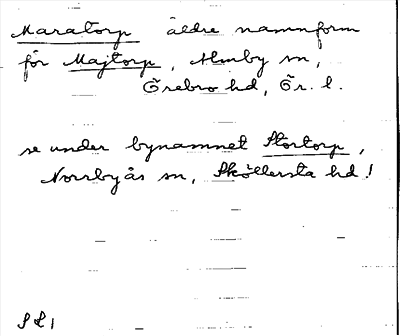 Maratorp äldre namnform
för Majtorp, Almby sn,
Örebro hd, Ör. l.
se under bynamnet Stortorp,
Norrbyås sn, Sköllersta hd!